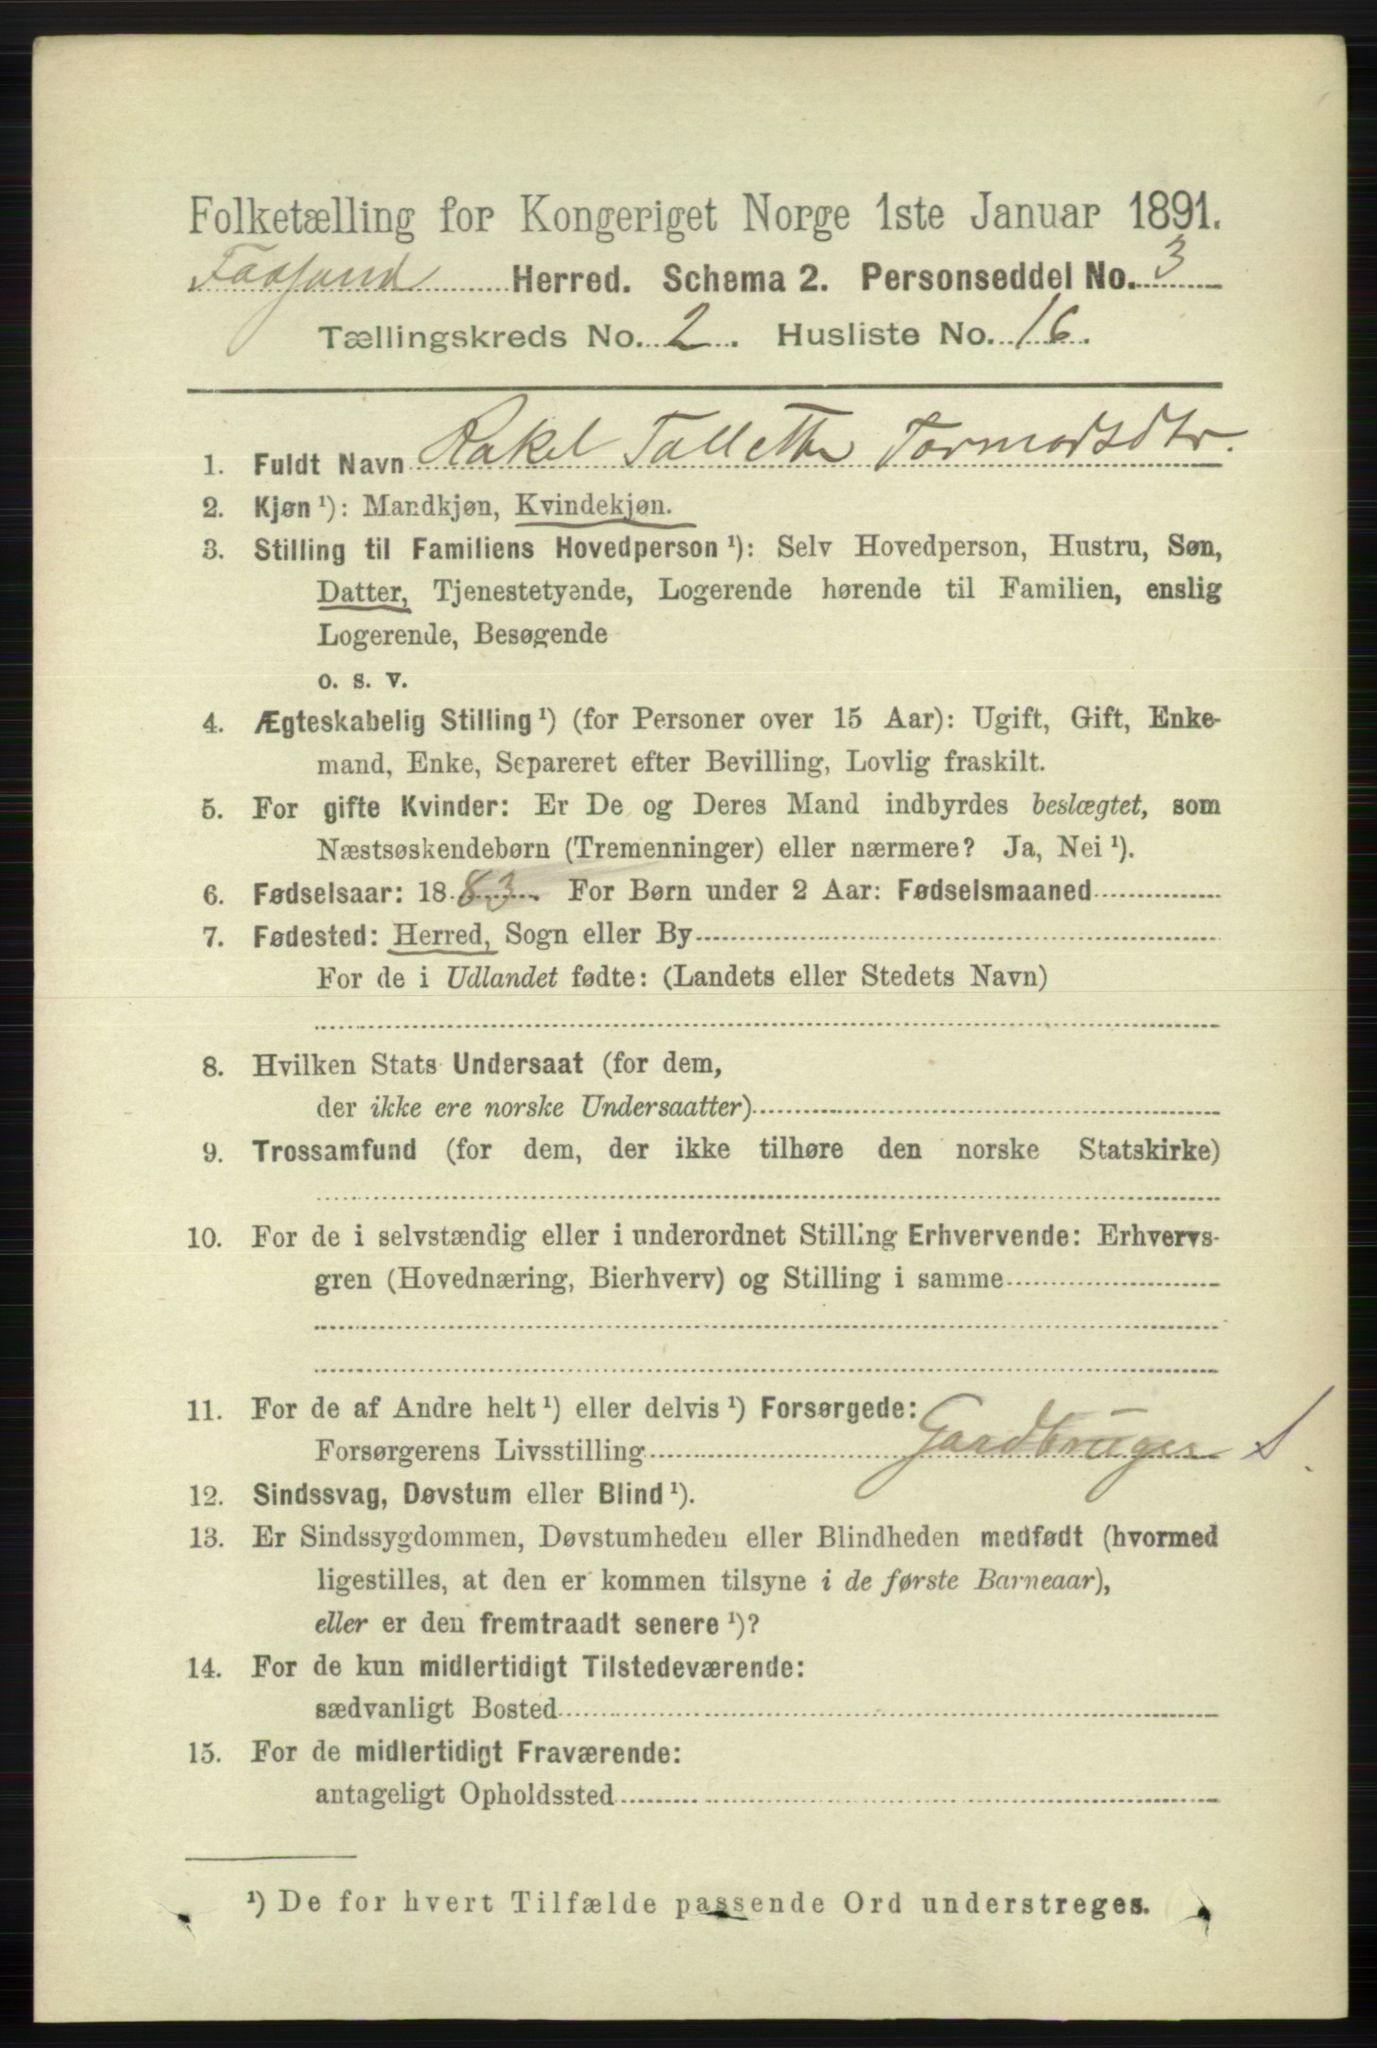 Folketælling for Kongeriget Norge 1ste Januar 1891.
Fossand Herred. Schema 2. Personseddel No. 3
Tællingskreds No. 2. Husliste No. 16.
1. Fuldt Navn Rakel Tallette Tormodsdtr.
2. Kjøn ¹): Mandkjøn, Kvindekjøn.
3. Stilling til Familiens Hovedperson ¹): Selv Hovedperson, Hustru, Søn,
Datter, Tjenestetyende, Logerende hørende til Familien, enslig
Logerende, Besøgende
o. s. v.
4. Ægteskabelig Stilling ¹) (for Personer over 15 Aar): Ugift, Gift, Enke-
mand, Enke, Separeret efter Bevilling, Lovlig fraskilt.
5. For gifte Kvinder: Er De og Deres Mand indbyrdes beslægtet, som
Næstsøskendebørn (Tremenninger) eller nærmere? Ja, Nei ¹).
6. Fødselsaar: 1883. For Børn under 2 Aar: Fødselsmaaned
7. Fødested: Herred, Sogn eller By
For de i Udlandet fødte: (Landets eller Stedets Navn)
8. Hvilken Stats Undersaat (for dem,
der ikke ere norske Undersaatter)
9. Trossamfund (for dem, der ikke tilhøre den norske Statskirke)
10. For de i selvstændig eller i underordnet Stilling Erhvervende: Erhvervs-
gren (Hovednæring, Bierhverv) og Stilling i samme
11. For de af Andre helt ¹) eller delvis ¹) Forsørgede:
Forsørgerens Livsstilling Gaardbruger S
12. Sindssvag, Døvstum eller Blind ¹).
13. Er Sindssygdommen, Døvstumheden eller Blindheden medfødt (hvormed
ligestilles, at den er kommen tilsyne i de første Barneaar),
eller er den fremtraadt senere ¹)?
14. For de kun midlertidigt Tilstedeværende:
sædvanligt Bosted
15. For de midlertidigt Fraværende:
antageligt Opholdssted
¹) De for hvert Tilfælde passende Ord understreges.